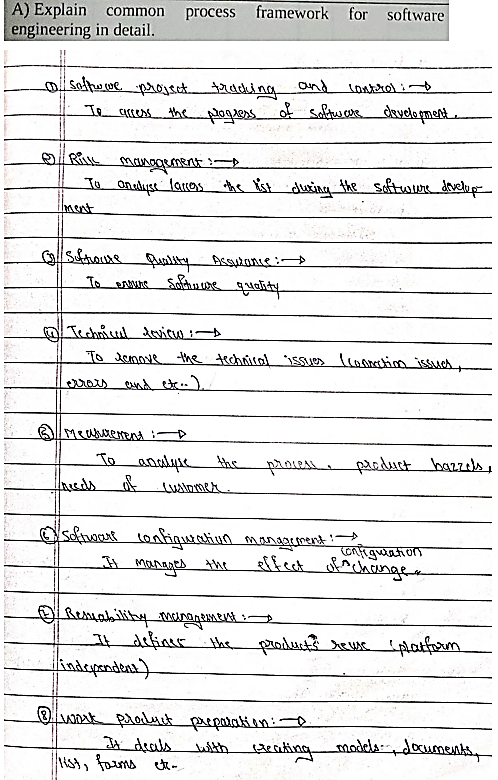 A) Explain common process framework for software
engineering in detail.
① Software project tracking and control :→
To access the progress of software development.
② Risk management :→
To analyse / access the rist during the software develop-
ment
③ Software Quality Assurance :→
To ensure software quality
④ Technical review :→
To remove the technical issues (connection issues,
errors and etc..).
⑤ Measurement :→
To analyse the process, product hazzels,
needs of customer.
⑥ Software configuration management :→
configuration
It manages the effect of ^ change.
⑦ Resuability management :→
It defines the product's reuse (platform
independent)
⑧ Work product preparation :→
It deals with creating models, documents,
list, forms etc-